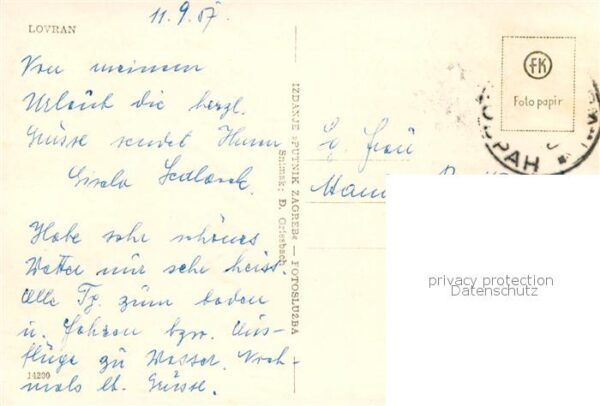 LOVRAN
11.9.57
Von meinem
Urlaub die herzl.
Grüsse sendet Ihnen
Gisela
Habe sehr schönes
Wetter nur sehr heiss.
Alle Tg. zum baden
u. fahren bzw. Aus-
flüge zu Wasser. Noch-
mals lb. Grüsse.
14230
IZDANJE »PUTNIK ZAGREB« — FOTOSLUŽBA
Snimak: D. Griesbach
Sg. Frau
FK
Foto papir
privacy protection
Datenschutz